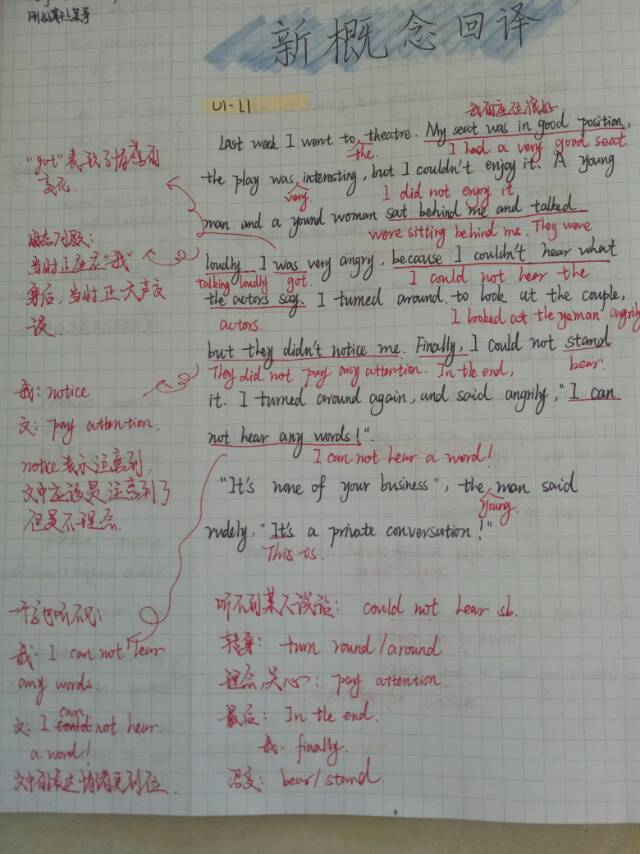 新概念回译
U1-L1
我的座位很好
Last week I went to theatre. My seat was in good position,
the. I had a very good seat
the play was interesting, but I couldn't enjoy it. A young
very I did not enjoy it
man and a yound woman sat behind me and talked
were sitting behind me. They were
loudly. I was very angry, because I couldn't hear what
talking loudly got. I could not hear the
the actors say. I turned around to look at the couple,
actors. I looked at the angrily
but they didn't notice me. Finally, I could not stand
They did not pay any attention. In the end, bear.
it. I turned around again, and said angrily, "I can
not hear any words!".
I can not hear a word!
"It's none of your business", the man said
young.
rudely, "It's a private conversation!"
This is.
"got"表现了情感的
变化
当时正座在"我"
身后,当时正大声交
谈.
我: notice
文: pay attention.
notice表示注意到,
文中应该是注意到了
但是不理会.
我: I can not hear
any words.
文: I can not hear
a word!
文中的表达情绪更到位.
听不到某人说话: could not hear sb.
转身: turn round/around
理会,关心: pay attention.
最后: In the end.
我: finally.
忍受: bear/stand